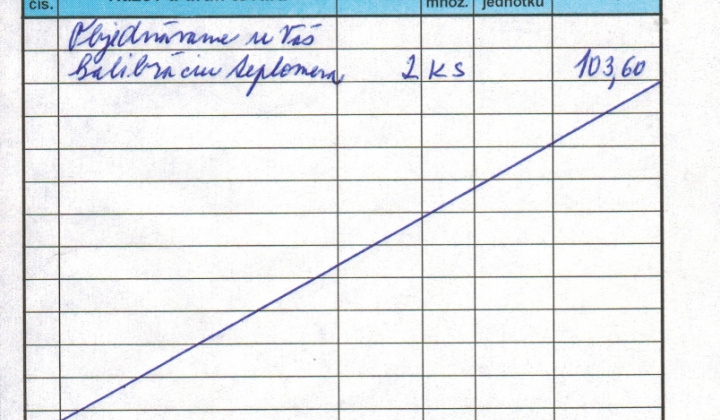 čís. množ. jednotku
Objednávame u Vás
kalibráciu teplomera 2 ks 103,60